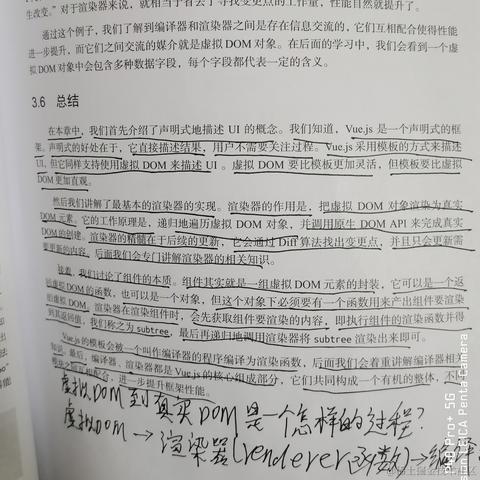 生改变。”对于渲染器来说，就相当于省去了寻找变更点的工作量，性能自然就提升了。
通过这个例子，我们了解到编译器和渲染器之间是存在信息交流的，它们互相配合使得性能
进一步提升，而它们之间交流的媒介就是虚拟 DOM 对象。在后面的学习中，我们会看到一个虚
拟 DOM 对象中会包含多种数据字段，每个字段都代表一定的含义。
3.6 总结
在本章中，我们首先介绍了声明式地描述 UI 的概念。我们知道，Vue.js 是一个声明式的框
架。声明式的好处在于，它直接描述结果，用户不需要关注过程。Vue.js 采用模板的方式来描述
UI，但它同样支持使用虚拟 DOM 来描述 UI。虚拟 DOM 要比模板更加灵活，但模板要比虚拟
DOM 更加直观。
然后我们讲解了最基本的渲染器的实现。渲染器的作用是，把虚拟 DOM 对象渲染为真实
DOM 元素。它的工作原理是，递归地遍历虚拟 DOM 对象，并调用原生 DOM API 来完成真实
DOM 的创建。渲染器的精髓在于后续的更新，它会通过 Diff 算法找出变更点，并且只会更新需
要更新的内容。后面我们会专门讲解渲染器的相关知识。
接着，我们讨论了组件的本质。组件其实就是一组虚拟 DOM 元素的封装，它可以是一个返
回虚拟 DOM 的函数，也可以是一个对象，但这个对象下必须要有一个函数用来产出组件要渲染
的虚拟 DOM。渲染器在渲染组件时，会先获取组件要渲染的内容，即执行组件的渲染函数并得
到其返回值，我们称之为 subtree，最后再递归地调用渲染器将 subtree 渲染出来即可。
Vue.js 的模板会被一个叫作编译器的程序编译为渲染函数，后面我们会着重讲解编译器相关
知识。最后，编译器、渲染器都是 Vue.js 的核心组成部分，它们共同构成一个有机的整体，不同
模块之间互相配合，进一步提升框架性能。
虚拟DOM 到真实DOM 是一个怎样的过程？
虚拟DOM → 渲染器(renderer函数) →